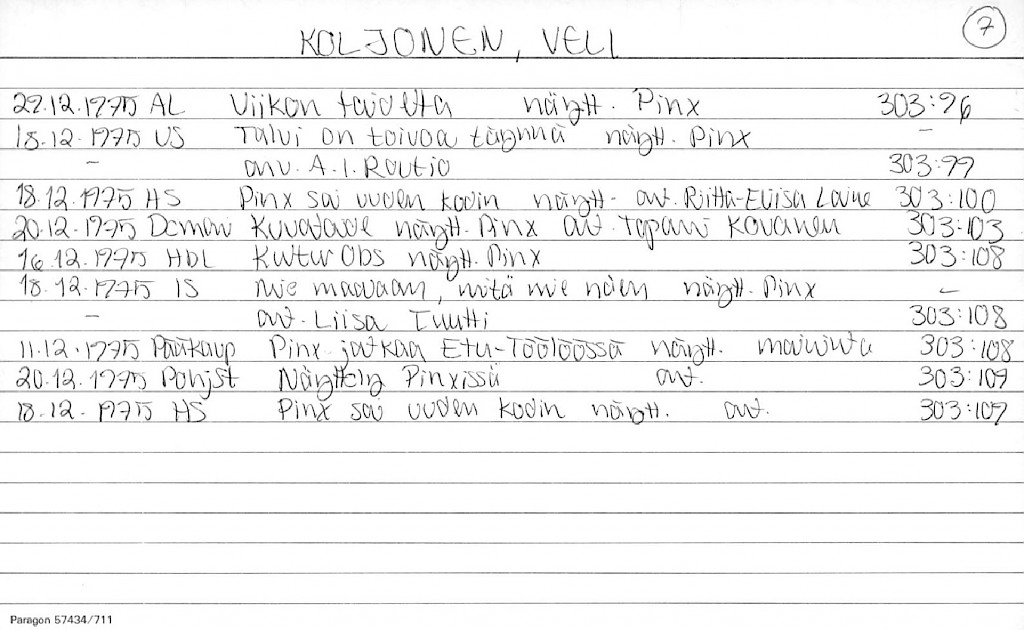 7
KOLJONEN, VELI
29.12.1975 AL Viikon taidetta näytt. Pinx 303:96
18.12.1975 US Talvi on toivoa täynnä näytt. Pinx -
- arv. A.I. Routio 303:99
18.12.1975 HS Pinx sai uuden kodin näytt. art. Riitta-Eliisa Laine 303:100
20.12.1975 Demari Kuvataide näytt. Pinx art. Tapani Kovanen 303:103
16.12.1975 HBL Kultur Obs näytt. Pinx 303:108
18.12.1975 IS mie maalaan, mitä mie näen näytt. Pinx -
- art. Liisa Tuutti 303:108
11.12.1975 Pääkaup Pinx jatkaa Etu-Töölössä näytt. maininta 303:108
20.12.1975 Pohjst Näyttely Pinxissä art. 303:109
18.12.1975 HS Pinx sai uuden kodin näytt. art. 303:109
Paragon 57434/711